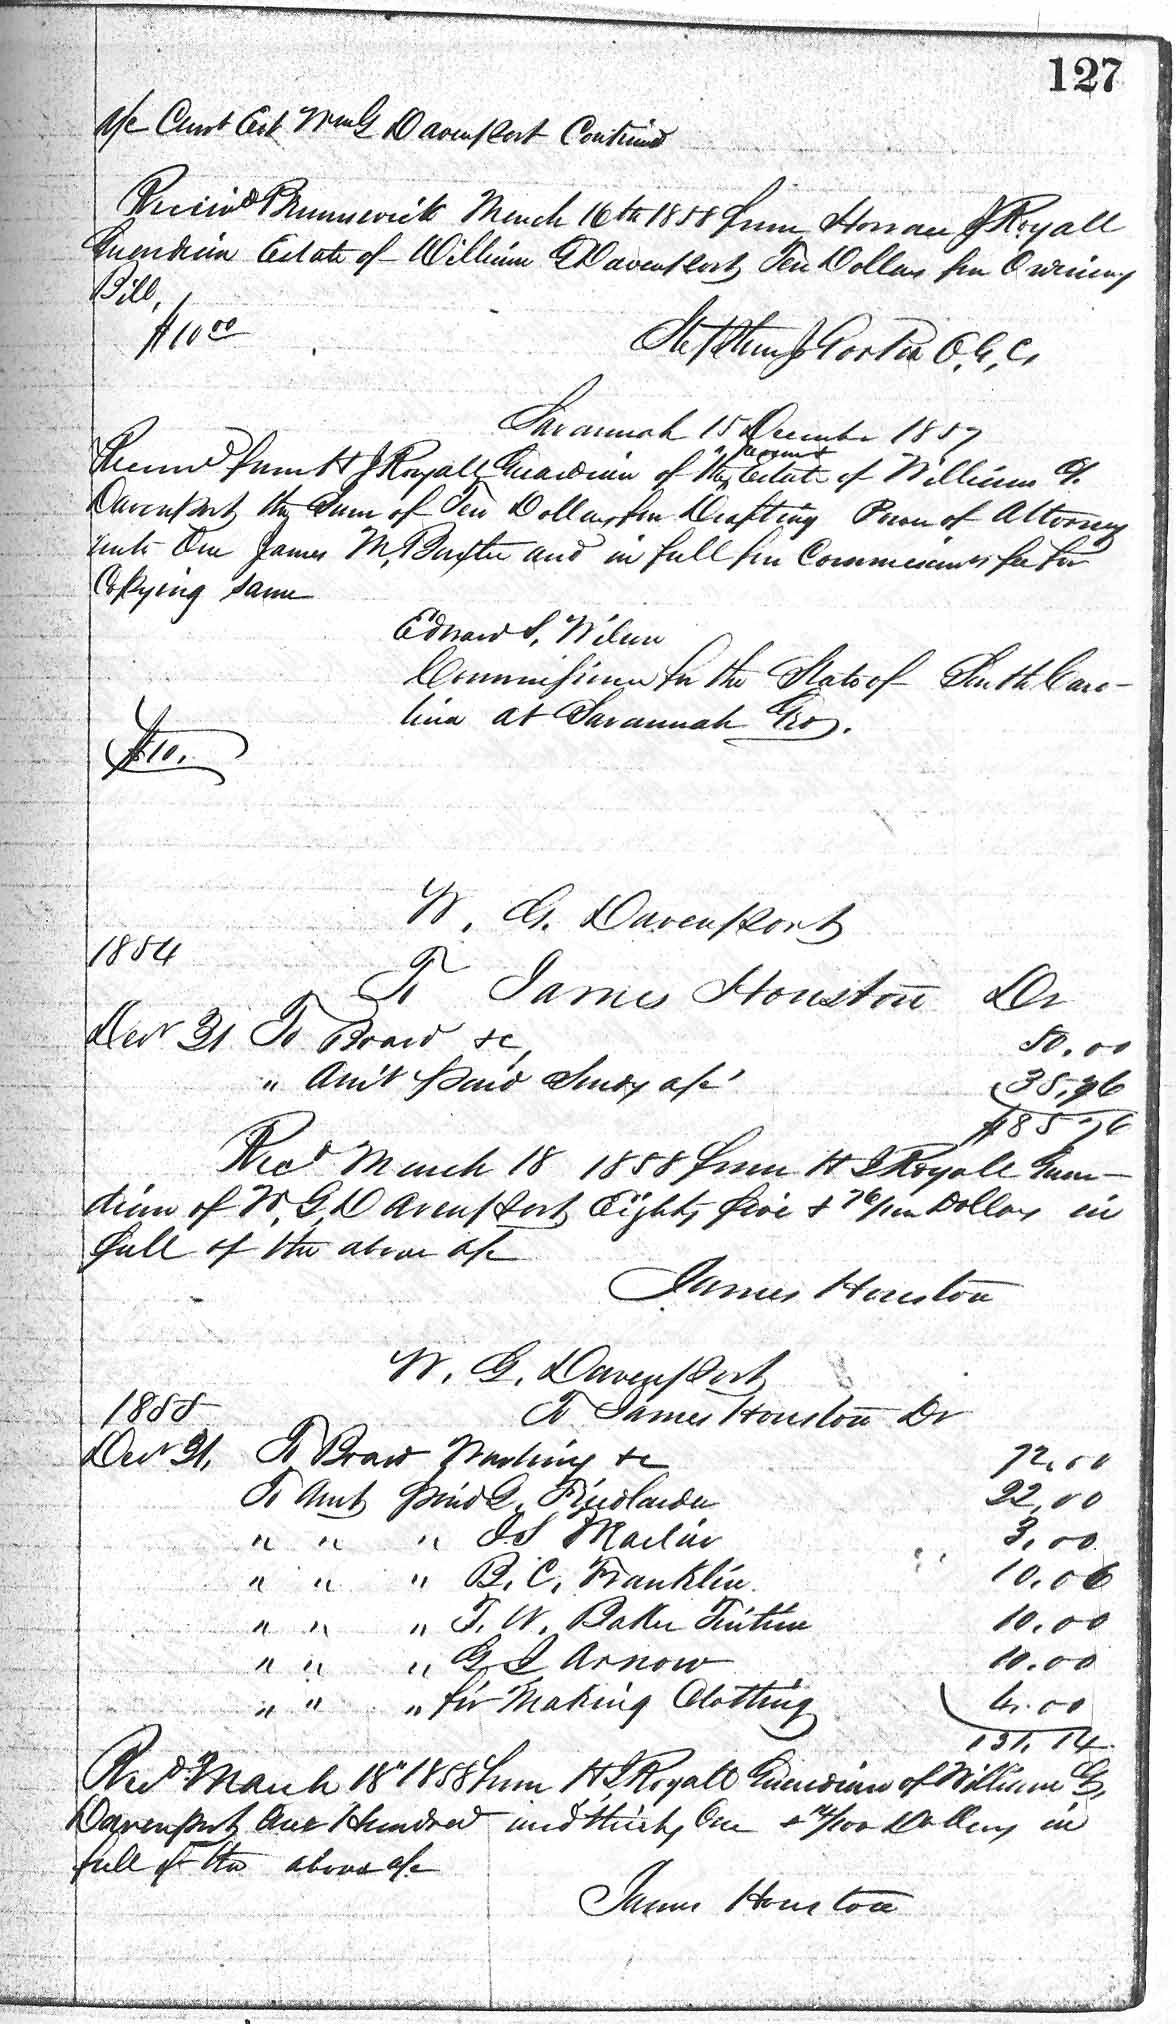 127
a/c Curt Est Wm G Davenport Continued
Receivd Brunswick March 16th 1858 from Horrace J Royall
Guardian Estate of William G Davenport Ten Dollars for
Bill,
$10 00
Stephen J Gorton O. G. C.
Savannah 15 December 1857
Receivd from H J Royall Guardian of the Estate of William G.
Davenport the Sum of Ten Dollars for Drafting Power of Attorney
unto One James M, Baxter and in full for Commissioners fee for
Copying same
Edward S. Wilson
Commissioner for the State of South Caro-
lina at Savannah Geo.
$10.
W. G. Davenport
1854
To James Houston Dr
Decr 31 To Board &c, 50.00
" Amt paid Sundry a/c 35.76
$85 76
Recd March 18 1858 from H J Royall Guar-
dian of W, G, Davenport Eighty five & 76/100 Dollars in
full of the above a/c
James Houston
W. G. Davenport
1855 To James Houston Dr
Decr 31. To Board Washing &c 72.00
To Amt paid G. 22.00
" " " J. S Maclin 3.00
" " " B. C. Franklin 10.06
" " " T. W. Baker Tuition 10.00
" " " G J Arnow 10.00
" " " for Making Clothing 4.00
131.14
Recd March 18" 1858 from H, J Royall Guardian of William G,
Davenport One Hundred and thirty One & 14/100 Dollars in
full of the above a/c
James Houston